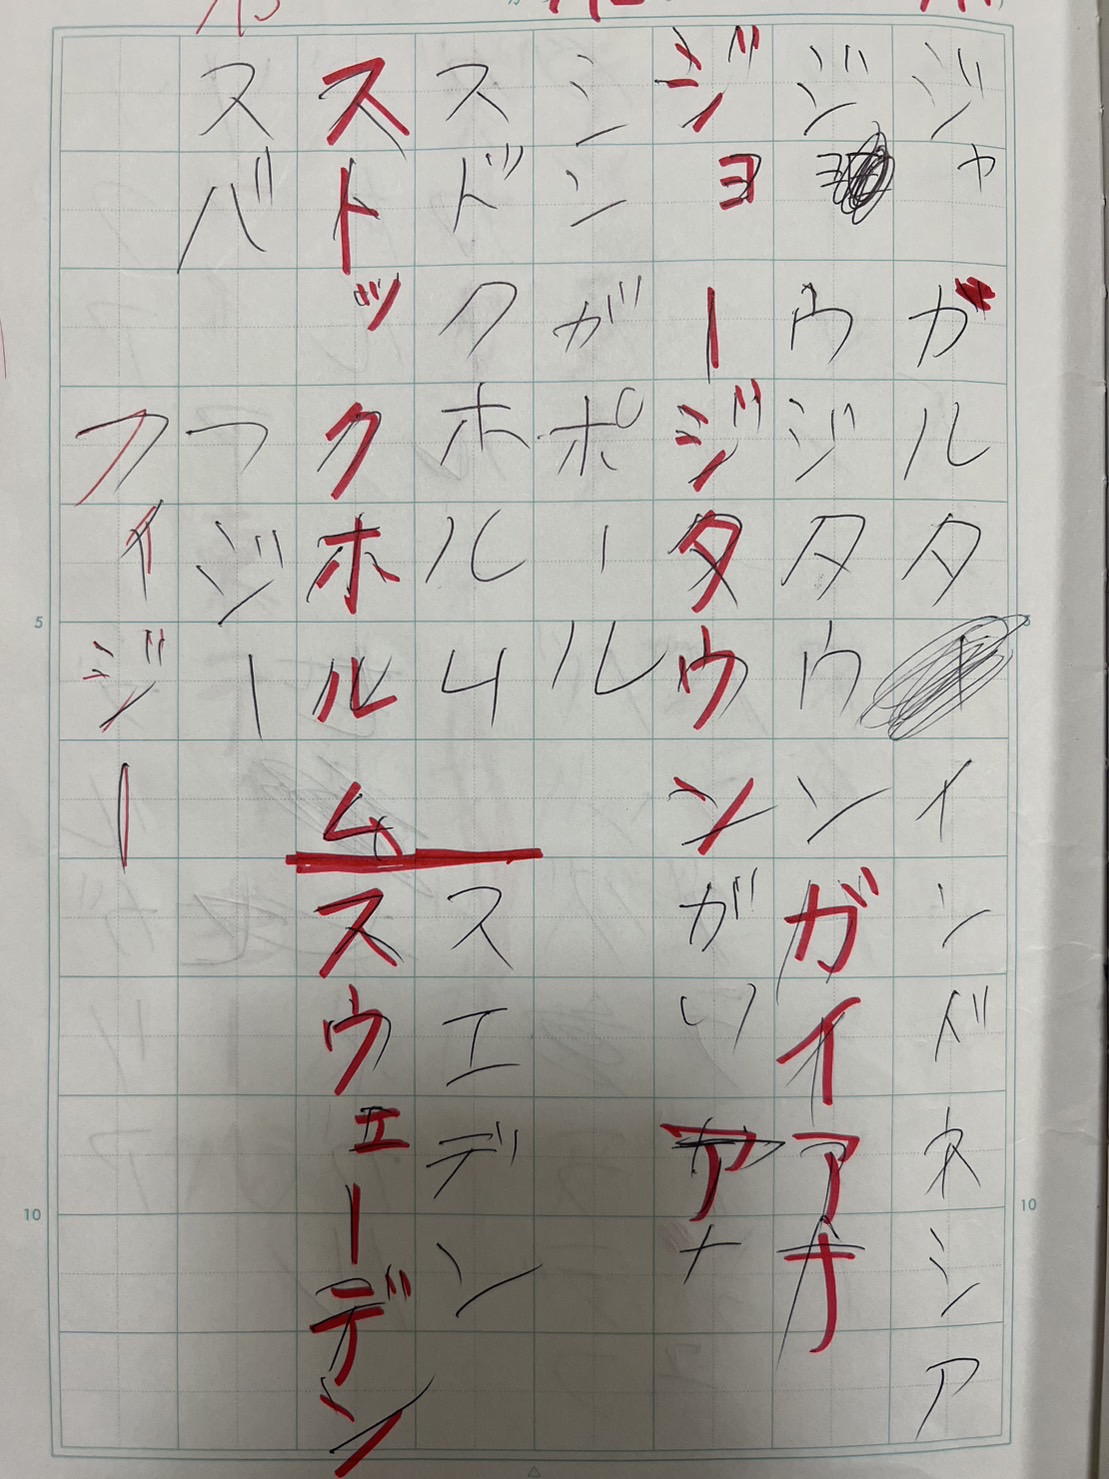 ジャガルタインドネシア
ジョウジタウンガイアナ
ジョージタウンがいアナ
シンガポール
スドクホルムスエデン
ストックホルムスウェーデン
スバフジー
フィジー
5
10
5
10